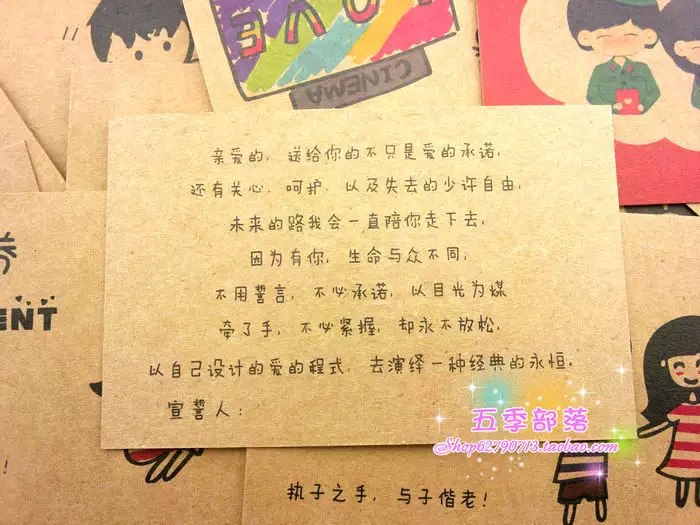 LOVE
CINEMA
亲爱的，送给你的不只是爱的承诺，
还有关心、呵护、以及失去的少许自由，
未来的路我会一直陪你走下去，
因为有你，生命与众不同，
不用誓言，不必承诺，以目光为媒
牵了手，不必紧握，却永不放松，
以自己设计的爱的程式，去演绎一种经典的永恒。
宣誓人：
券
ENT
五季部落
Shop62790713.taobao.com
执子之手，与子偕老！
！